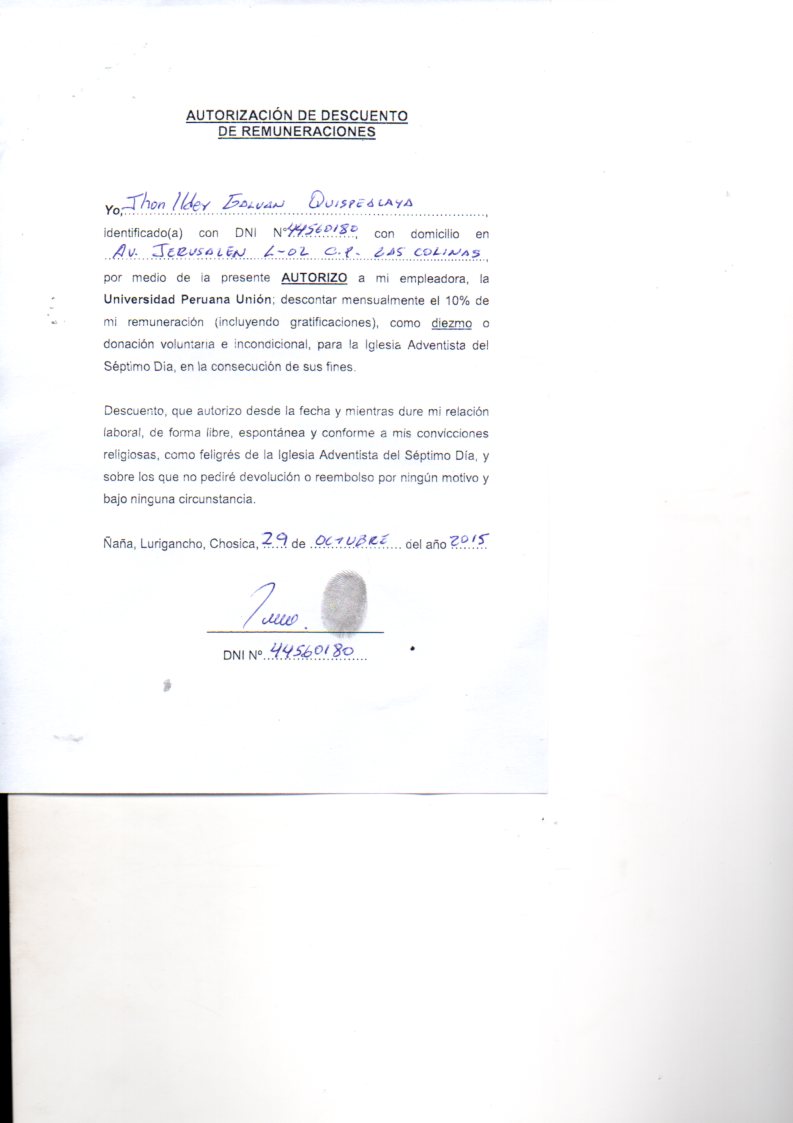 AUTORIZACIÓN DE DESCUENTO
DE REMUNERACIONES
Yo, Jhon Ilder Galvan Quispealaya
identificado(a) con DNI N° 44560180, con domicilio en
AV. JERUSALÉN L-02 C.P. LAS COLINAS,
por medio de la presente AUTORIZO a mi empleadora, la
Universidad Peruana Unión; descontar mensualmente el 10% de
mi remuneración (incluyendo gratificaciones), como diezmo o
donación voluntaria e incondicional, para la Iglesia Adventista del
Séptimo Dia, en la consecución de sus fines.
Descuento, que autorizo desde la fecha y mientras dure mi relación
laboral, de forma libre, espontánea y conforme a mis convicciones
religiosas, como feligrés de la Iglesia Adventista del Séptimo Día, y
sobre los que no pediré devolución o reembolso por ningún motivo y
bajo ninguna circunstancia.
Ñaña, Lurigancho, Chosica, 29 de OCTUBRE del año 2015
DNI Nº 44560180